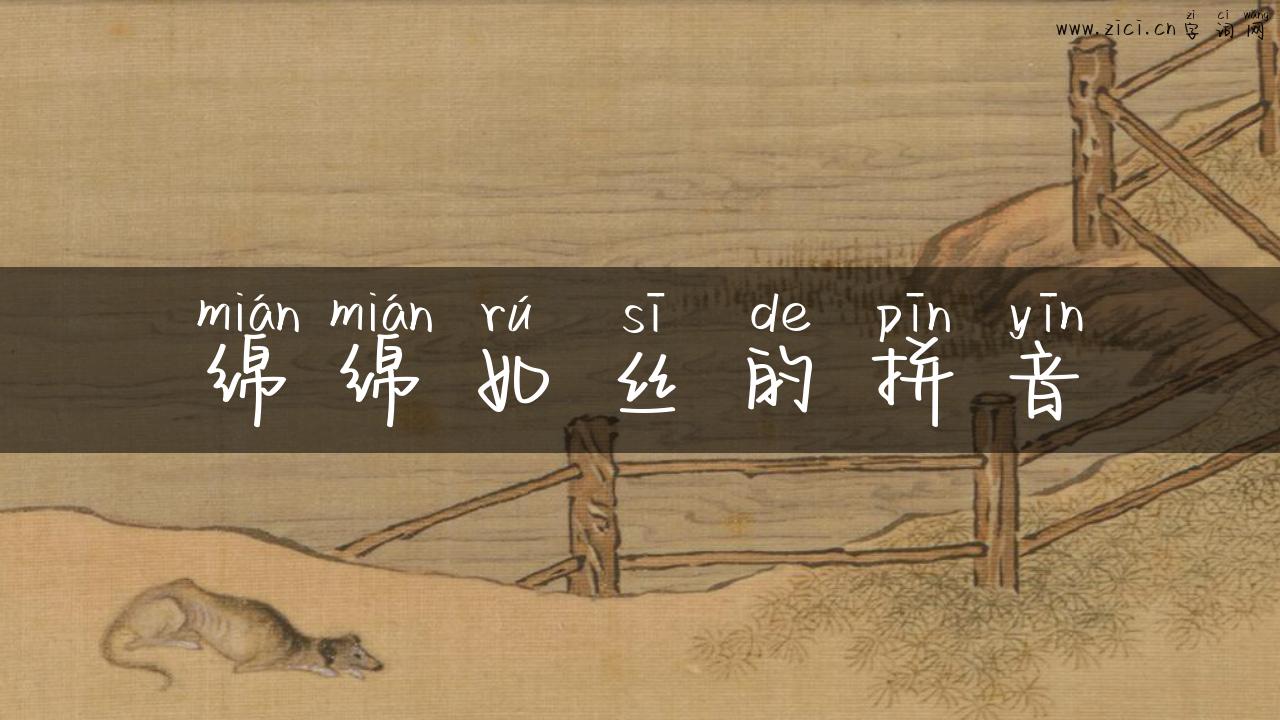 zì cí wǎng
www.zici.cn 字词网
mián mián rú sī de pīn yīn
绵绵如丝的拼音